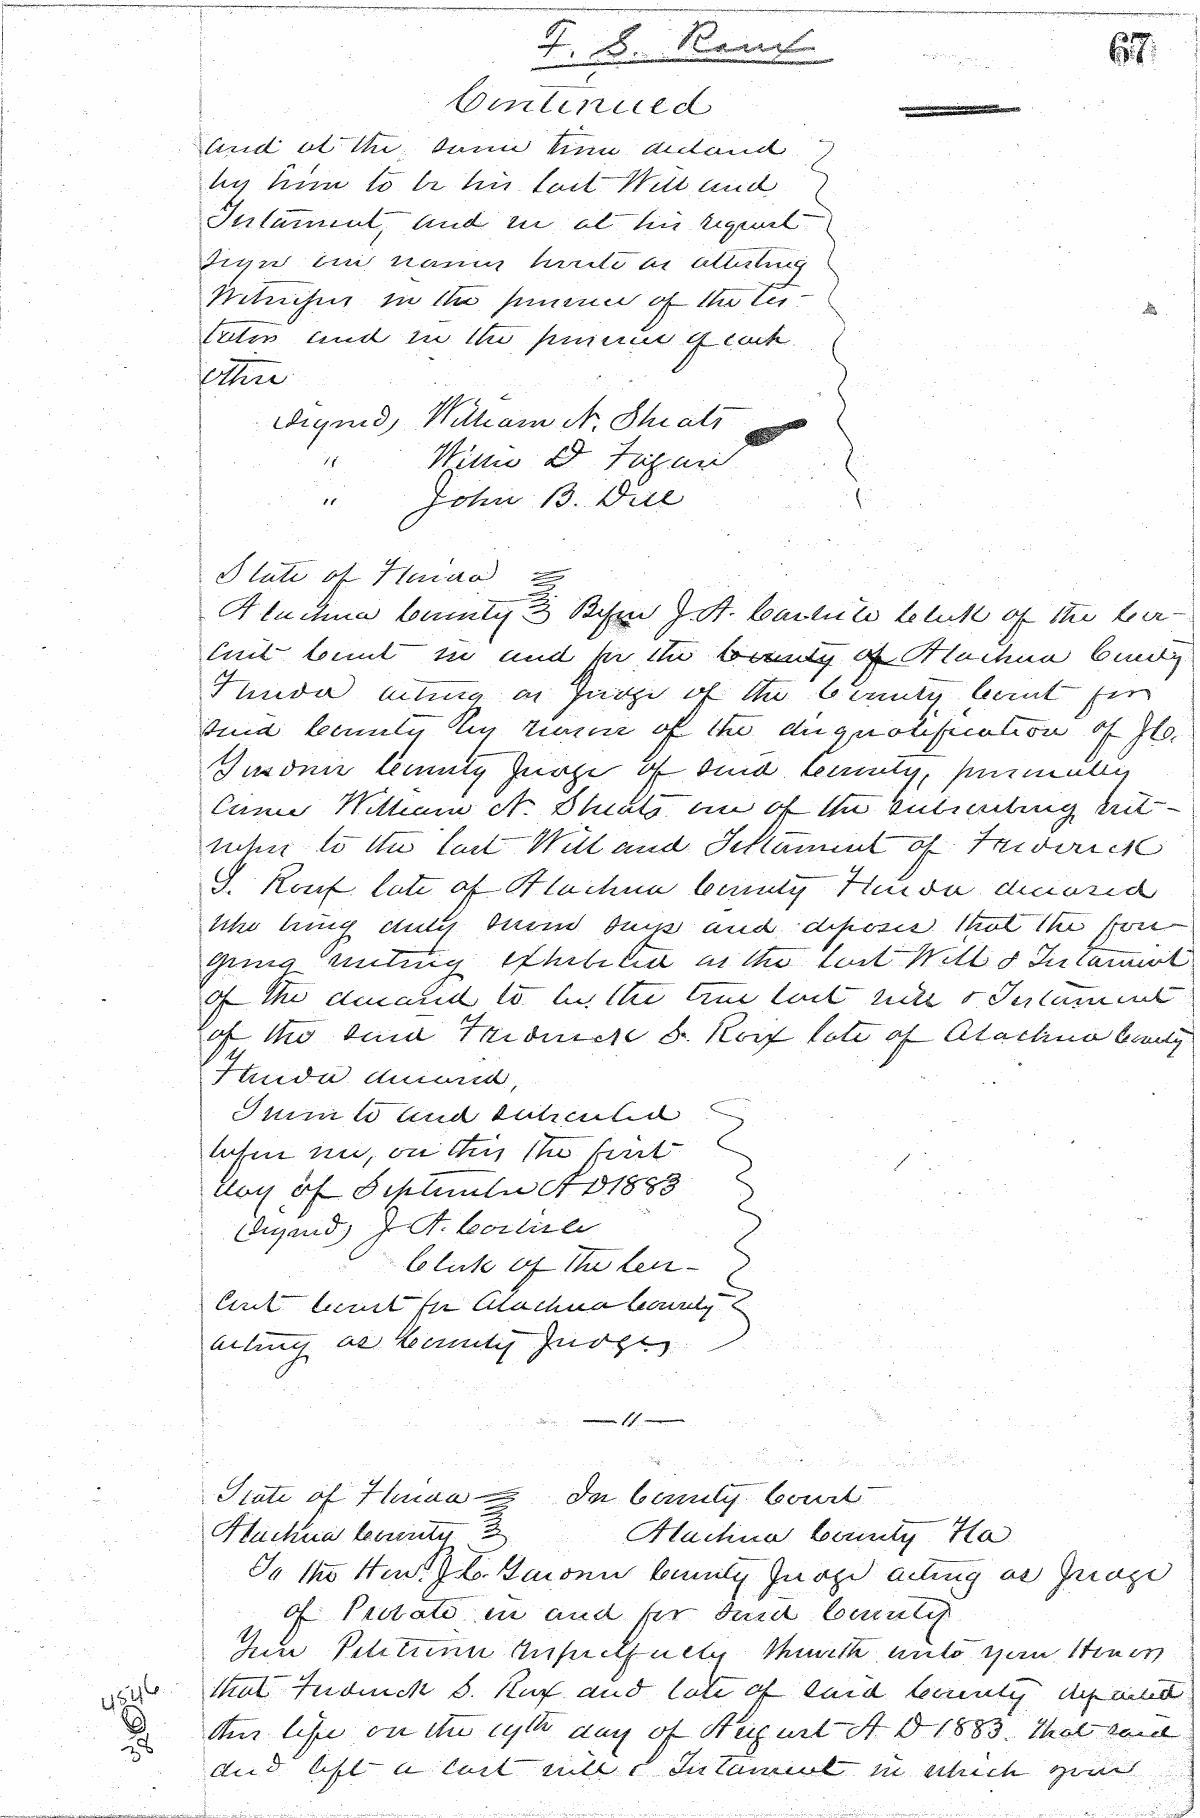 F. S. Roux
67
Continued
and at the same time declared
by him to be his last Will and
Testament, and we at his request
sign our names hereto as attesting
Witnesses in the presence of the tes-
tator and in the presence of each
other
(signed) William N. Sheats
" Willie D
" John B. Dell
State of Florida
Alachua County Before J. A. Carlisle Clerk of the Cir-
cuit Court in and for the County of Alachua County
Florida acting as Judge of the County Court for
said County by reason of the disqualification of J C.
County Judge of said County, personally
came William N. Sheats one of the subscribing wit-
nesses to the last Will and Testament of Frederick
S. Roux late of Alachua County Florida deceased
who being duly sworn says and deposes that the fore-
going writing exhibited as the last Will & Testament
of the deceased to be the true last will & Testament
of the said Frederick S. Roux late of Alachua County
Florida deceased,
Sworn to and subscribed
before me, on this the first
day of September A D 1883
(signed) J. A. Carlisle
Clerk of the Cir-
cuit Court for Alachua County
acting as County Judge
State of Florida In County Court
Alachua County Alachua County Fla
To the Hon. J. C. County Judge acting as Judge
of Probate in and for said County
Your Petitioner respectfully showeth unto your Honor
that Frederick S. Roux and late of said County departed
this life on the 19th day of August A D 1883. That said
decd left a last will & Testament in which your